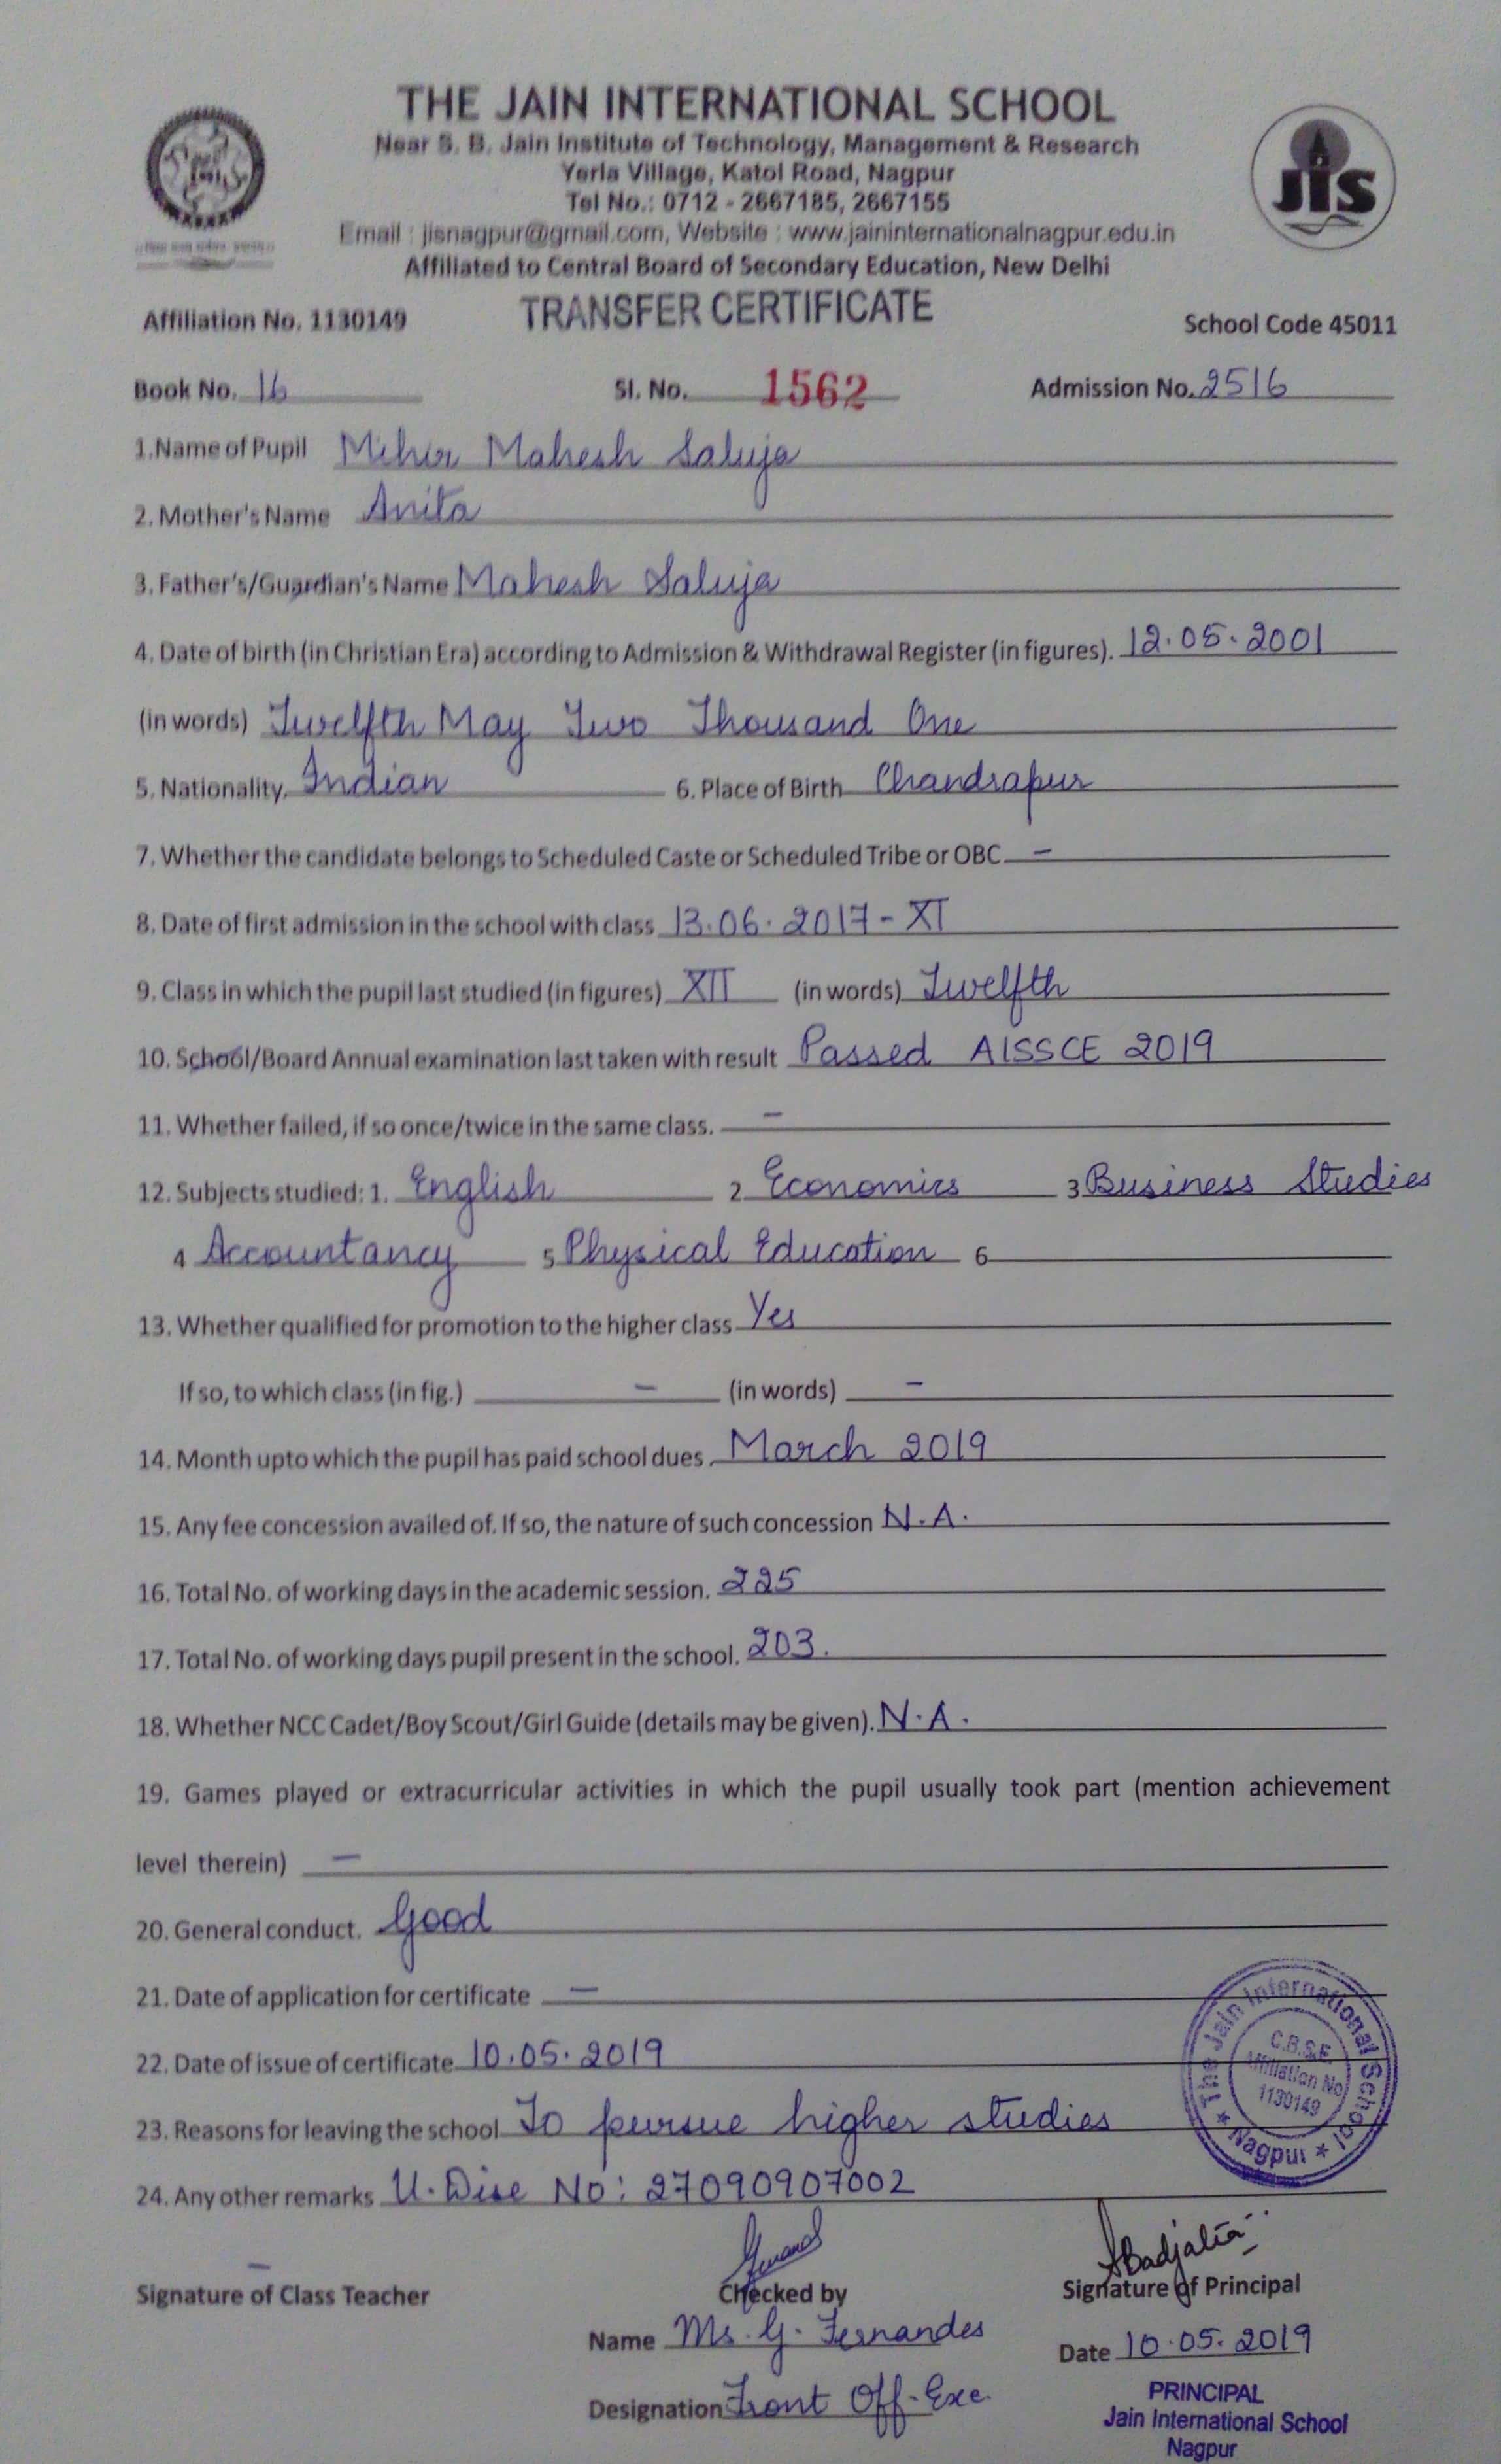 THE JAIN INTERNATIONAL SCHOOL
Near S. B. Jain Institute of Technology, Management & Research
Yerla Village, Katol Road, Nagpur
Tel No.: 0712 - 2667185, 2667155
Email : jisnagpur@gmail.com, Website : www.jaininternationalnagpur.edu.in
Affiliated to Central Board of Secondary Education, New Delhi
JIS
TRANSFER CERTIFICATE
Affiliation No. 1130149 School Code 45011
Book No. 16 Sl. No. 1562 Admission No. 2516
1.Name of Pupil Mihir Mahesh Saluja
2. Mother's Name Anita
3. Father's/Guardian's Name Mahesh Saluja
4. Date of birth (in Christian Era) according to Admission & Withdrawal Register (in figures). 12.05.2001
(in words) Twelfth May Two Thousand One
5. Nationality. Indian 6. Place of Birth Chandrapur
7. Whether the candidate belongs to Scheduled Caste or Scheduled Tribe or OBC -
8. Date of first admission in the school with class 13.06.2017 - XI
9. Class in which the pupil last studied (in figures) XII (in words) Twelfth
10. School/Board Annual examination last taken with result Passed AISSCE 2019
11. Whether failed, if so once/twice in the same class. -
12. Subjects studied: 1. English 2 Economics 3 Business Studies
4 Accountancy 5 Physical Education 6
13. Whether qualified for promotion to the higher class Yes
If so, to which class (in fig.) - (in words) -
14. Month upto which the pupil has paid school dues. March 2019
15. Any fee concession availed of. If so, the nature of such concession N.A.
16. Total No. of working days in the academic session. 225
17. Total No. of working days pupil present in the school. 203.
18. Whether NCC Cadet/Boy Scout/Girl Guide (details may be given). N.A.
19. Games played or extracurricular activities in which the pupil usually took part (mention achievement
level therein) -
20. General conduct. Good
21. Date of application for certificate -
22. Date of issue of certificate 10.05.2019
23. Reasons for leaving the school To pursue higher studies
24. Any other remarks U.Dise No: 27090907002
The Jain International School
C.B.S.E.
Affiliation No
1130149
★ Nagpur ★
- Abadjatia
Signature of Class Teacher Checked by Signature of Principal
Name Ms. G. Fernandes Date 10.05.2019
Designation Front Off. Exe.
PRINCIPAL
Jain International School
Nagpur